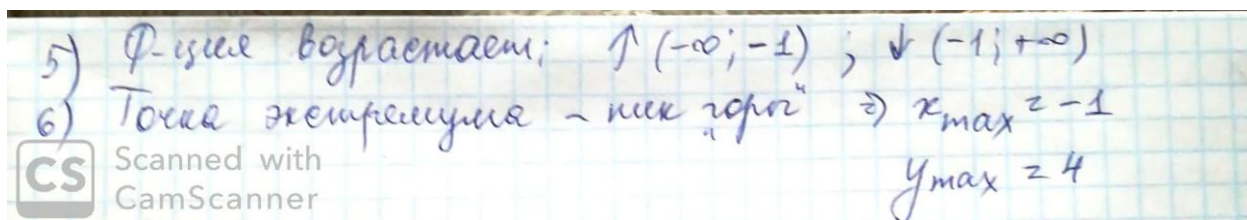 5) Ф-ция возрастает: ↑ (-∞; -1) ; ↓ (-1; +∞)
6) Точка экстремума - пик „горы" => x max = -1
y max = 4
CS Scanned with
CamScanner